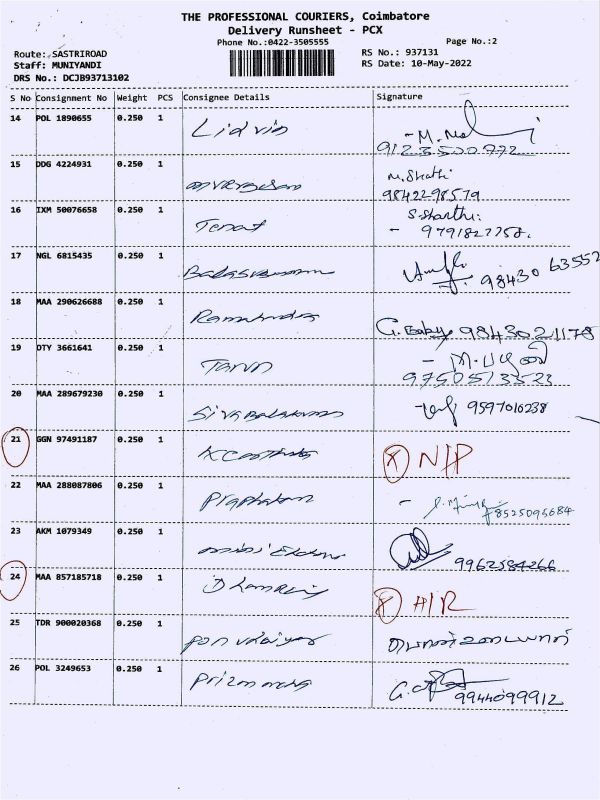 THE PROFESSIONAL COURIERS, Coimbatore
Delivery Runsheet - PCX
Phone No.:0422-3505555
Page No.:2
Route: SASTRIROAD
Staff: MUNIYANDI
DRS No.: DCJB93713102
RS No.: 937131
RS Date: 10-May-2022
S No Consignment No Weight PCS Consignee Details Signature
14 POL 1890655 0.250 1 Lidvin
15 DDG 4224931 0.250 1 M. Shathi
9842298579
16 IXM 50076658 0.250 1 S. Sharthi:
- 9791827758.
17 NGL 6815435 0.250 1 98430 63552
18 MAA 290626688 0.250 1 G. Baby 9843021178
19 DTY 3661641 0.250 1 Tarun
9750513523
20 MAA 289679230 0.250 1 Sivabalakumar 9597016238
21 GGN 97491187 0.250 1 X N/P
22 MAA 288087806 0.250 1 Praphakaran 8525095684
23 AKM 1079349 0.250 1 9962584266
24 MAA 857185718 0.250 1 Dhanraj X A/R
25 TDR 900020368 0.250 1
26 POL 3249653 0.250 1 9944099912